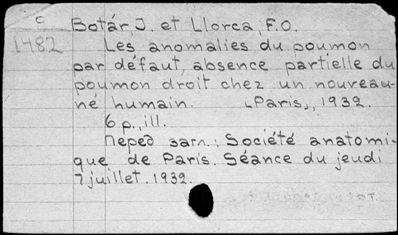 C
1482
Botár, J. et Llorca, F.O.
Les anomalies du poumon
par défaut, absence partielle du
poumon droit chez un nouveau-
né humain. Paris, 1932.
6 p., ill.
Перед загл.: Société anatomi-
que de Paris. Séance du jeudi
7 juillet. 1932.